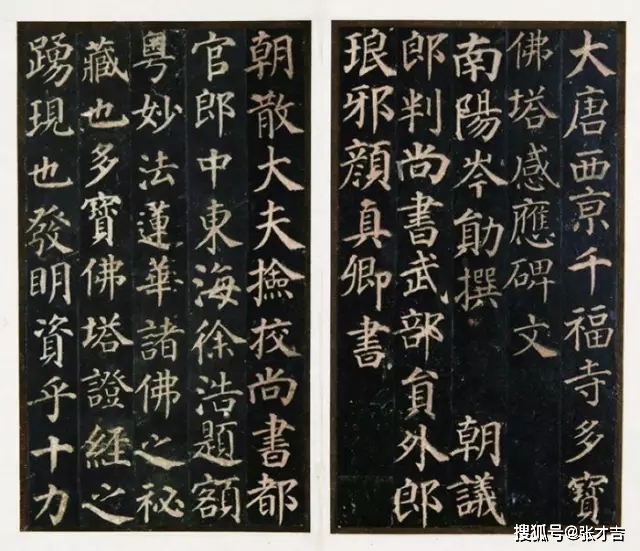 大唐西京千福寺多寶
佛塔感應碑文
南陽岑勛撰 朝議
郎判尚書武部員外郎
琅邪顏真卿書
朝散大夫撿挍尚書都
官郎中東海徐浩題額
粵妙法蓮華諸佛之秘
藏也多寶佛塔證經之
踴現也發明資乎十力
搜狐号@张才吉